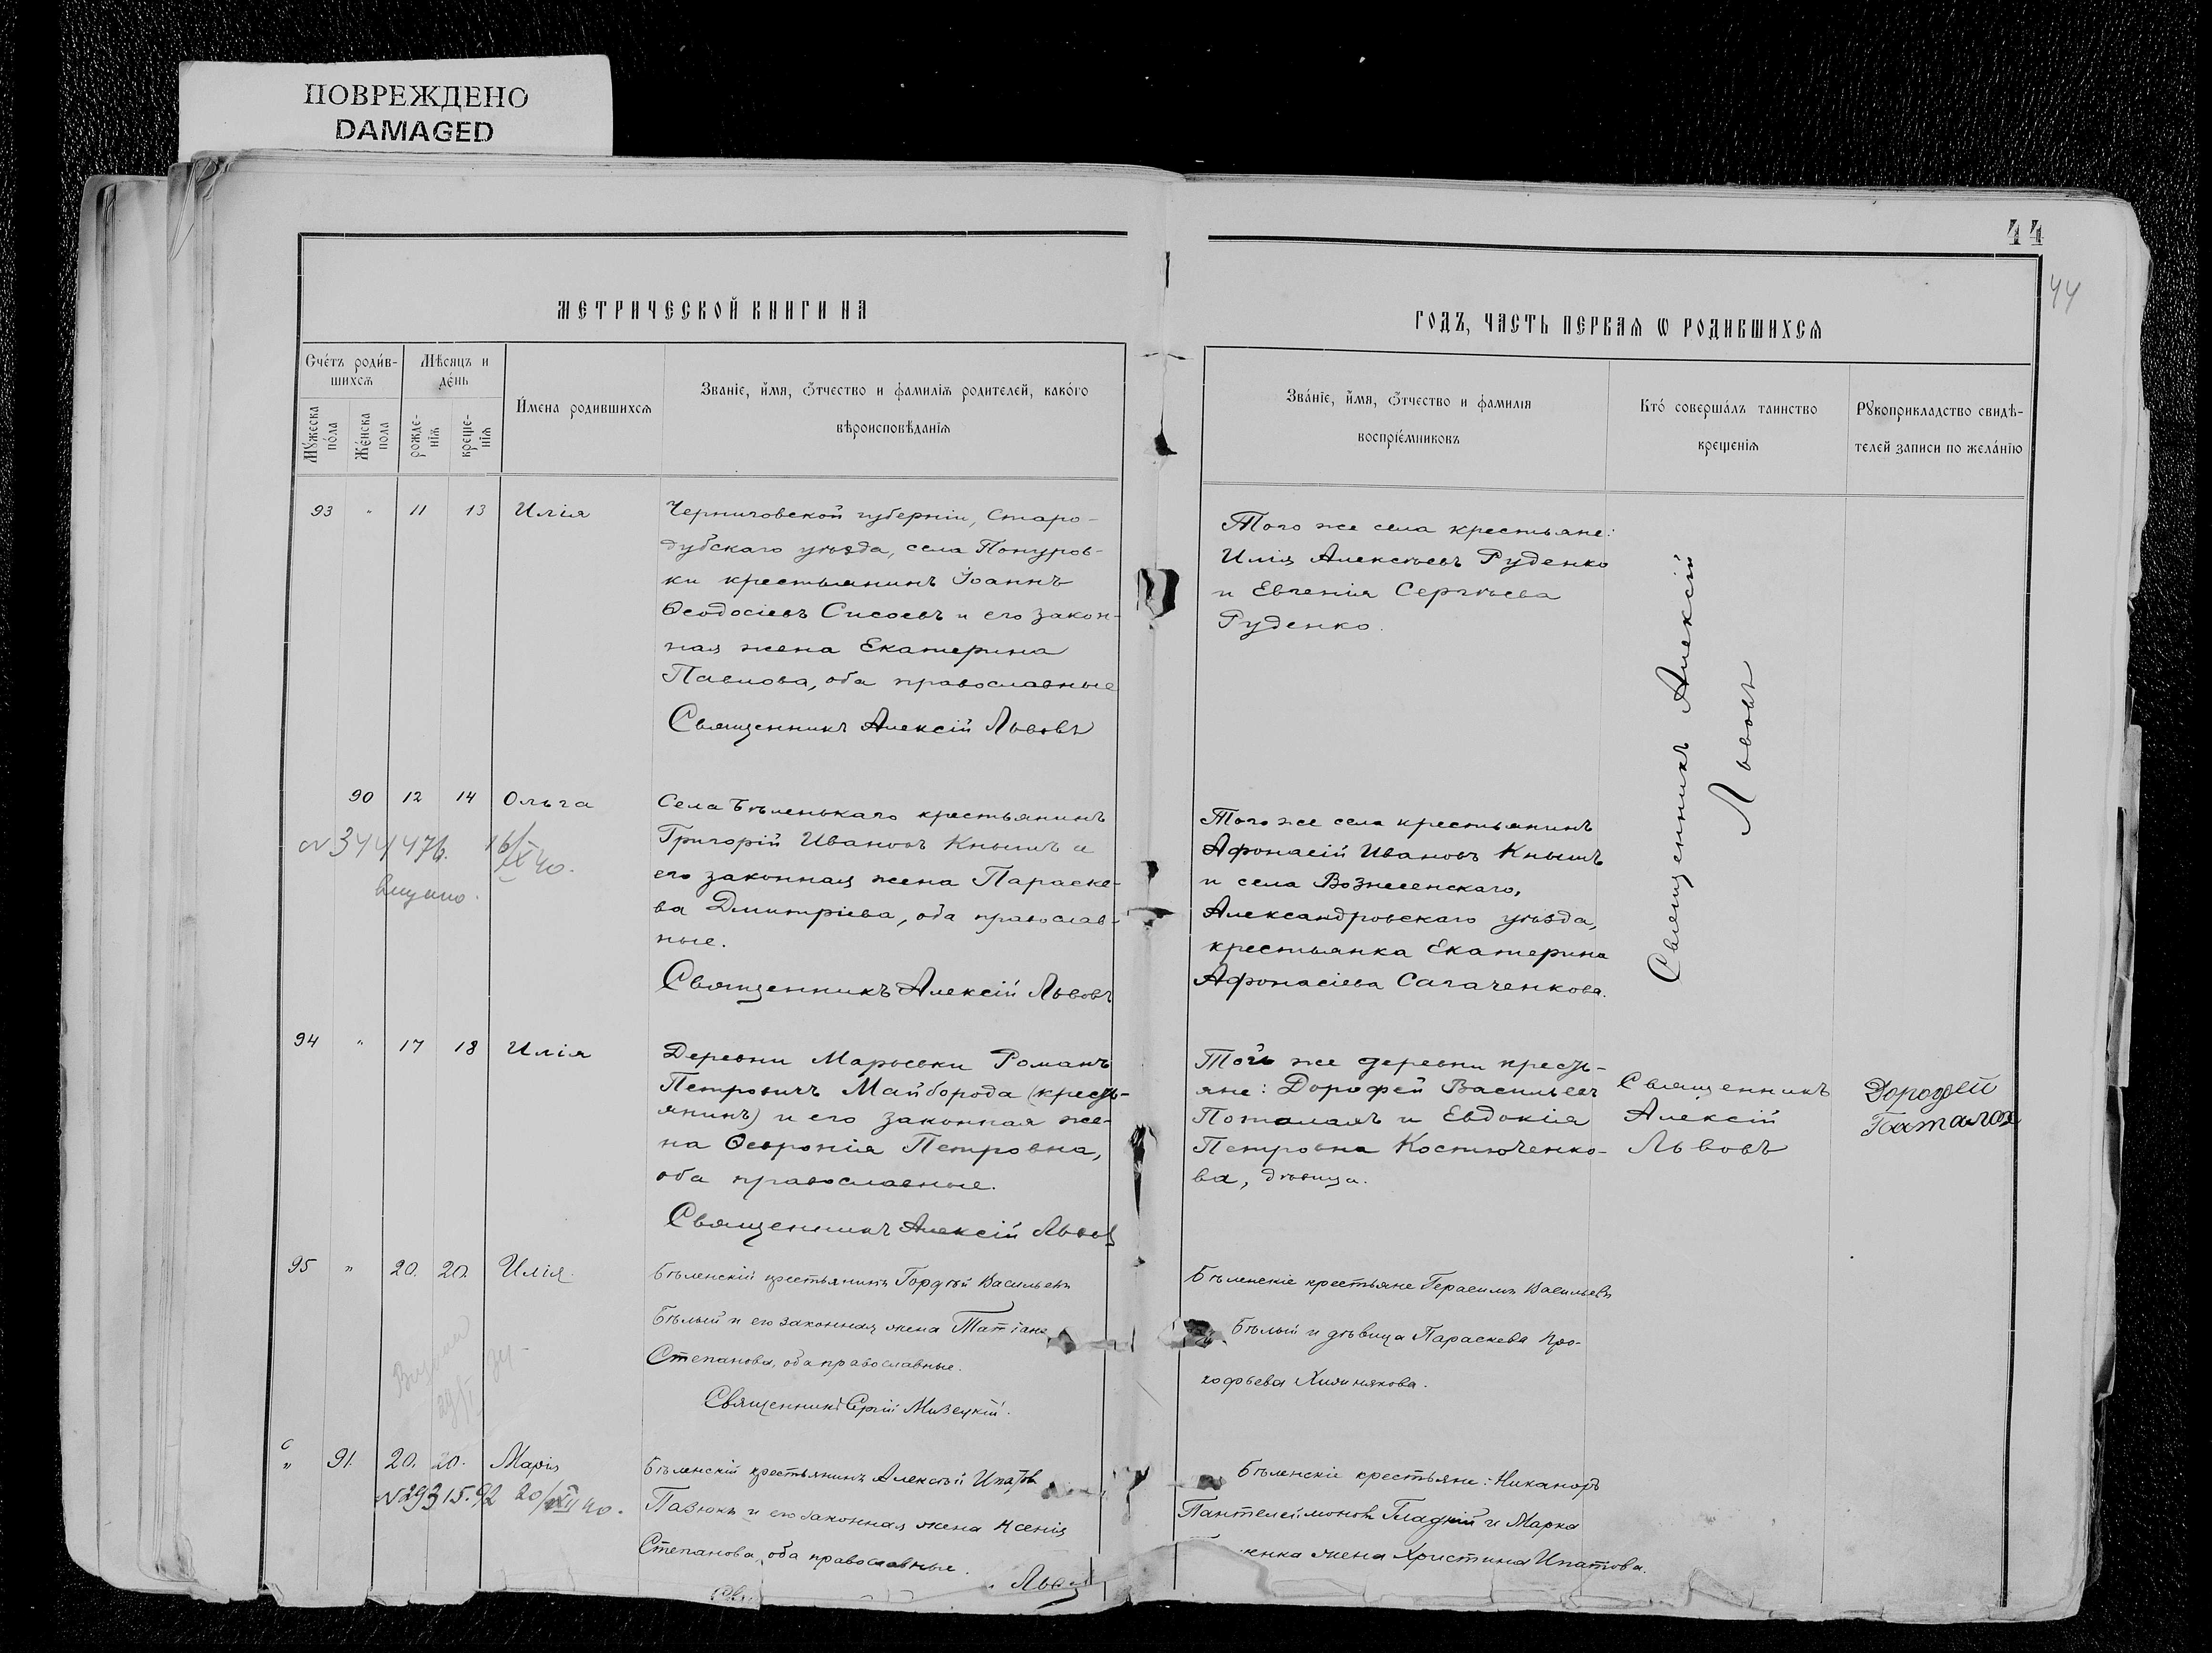 ПОВРЕЖДЕНО
DAMAGED
44
44
МЕТРИЧЕСКОЙ КНИГИ НА
ГОДЪ, ЧАСТЬ ПЕРВАЯ Ѡ РОДИВШИХСЯ
Счéтъ роди́в-
шихсѧ
Мѣсяцъ и
дéнь
Мꙋ́жеска
по́ла
Жéнска
пола
рожде-
нїѧ
креще-
нїѧ
И́мена родившихсѧ
Званїе, и́мя, ѻ́тчество и фамилїѧ родителей, како́го
вѣроисповѣданїѧ
Зва́нїе, и́мя, ѻ́тчество и фамилїя
воспрїéмниковъ
Кто́ соверша́лъ таинство
крещенїѧ
Рꙋкоприкладство свидѣ-
телей записи по жела́нїю
93 " 11 13 Илія
Черниговской губерніи, Старо-
дубскаго уѣзда, села Понуров-
ки крестьянинъ Іоаннъ
Ѳеодосіевъ Сисоевъ и его закон-
ная жена Екатерина
Павлова, оба православные
Священникъ Алексій Львовъ
Того же села крестьяне:
Илія Алексѣевъ Руденко
и Евгенія Сергѣева
Руденко.
Священникъ Алексій
Львовъ
90 12 14 Ольга
N 344476. 16/IX 40.
Села Бѣленькаго крестьянинъ
Григорій Ивановъ Кнышъ и
его законная жена Параске-
ва Димитріева, оба православ-
ные.
Священникъ Алексій Львовъ
Того же села крестьянинъ
Афонасій Ивановъ Кнышъ
и села Вознесенскаго,
Александровскаго уѣзда,
крестьянка Екатерина
Афонасіева Сагаченкова.
94 " 17 18 Илія
Деревни Марьевки Романъ
Петровичъ Майборода (кресть-
янинъ) и его законная же-
на Ѳевронія Петровна,
оба православные.
Священникъ Алексій Львовъ
Той же деревни кресть-
яне: Дорофей Васильевъ
Поталахъ и Евдокія
Петровна Костюченко-
ва, дѣвица.
Священникъ
Алексій
Львовъ
Дорофей
Паталах
95 " 20. 20. Илія.
Бѣленскій крестьянинъ Гордѣй Васильевъ
Бѣлый и его законная жена Татіана
Степанова, оба православные.
Священникъ Сергій Мизецкій.
Бѣленскіе крестьяне Герасимъ Васильевъ
Бѣлый и дѣвица Параскева Про-
кофьева Химинякова.
" 91. 20. 20. Марія
N 29315.92 20/XII 40.
Бѣленскій крестьянинъ Алексѣй Ипатов
Павюкъ и его законная жена Ксенія
Степанова, оба православные.
Льво
Бѣленскіе крестьяне: Никаноръ
Пантелеймоновъ Гладкій и Марка
енка жена Христина Ипатова.